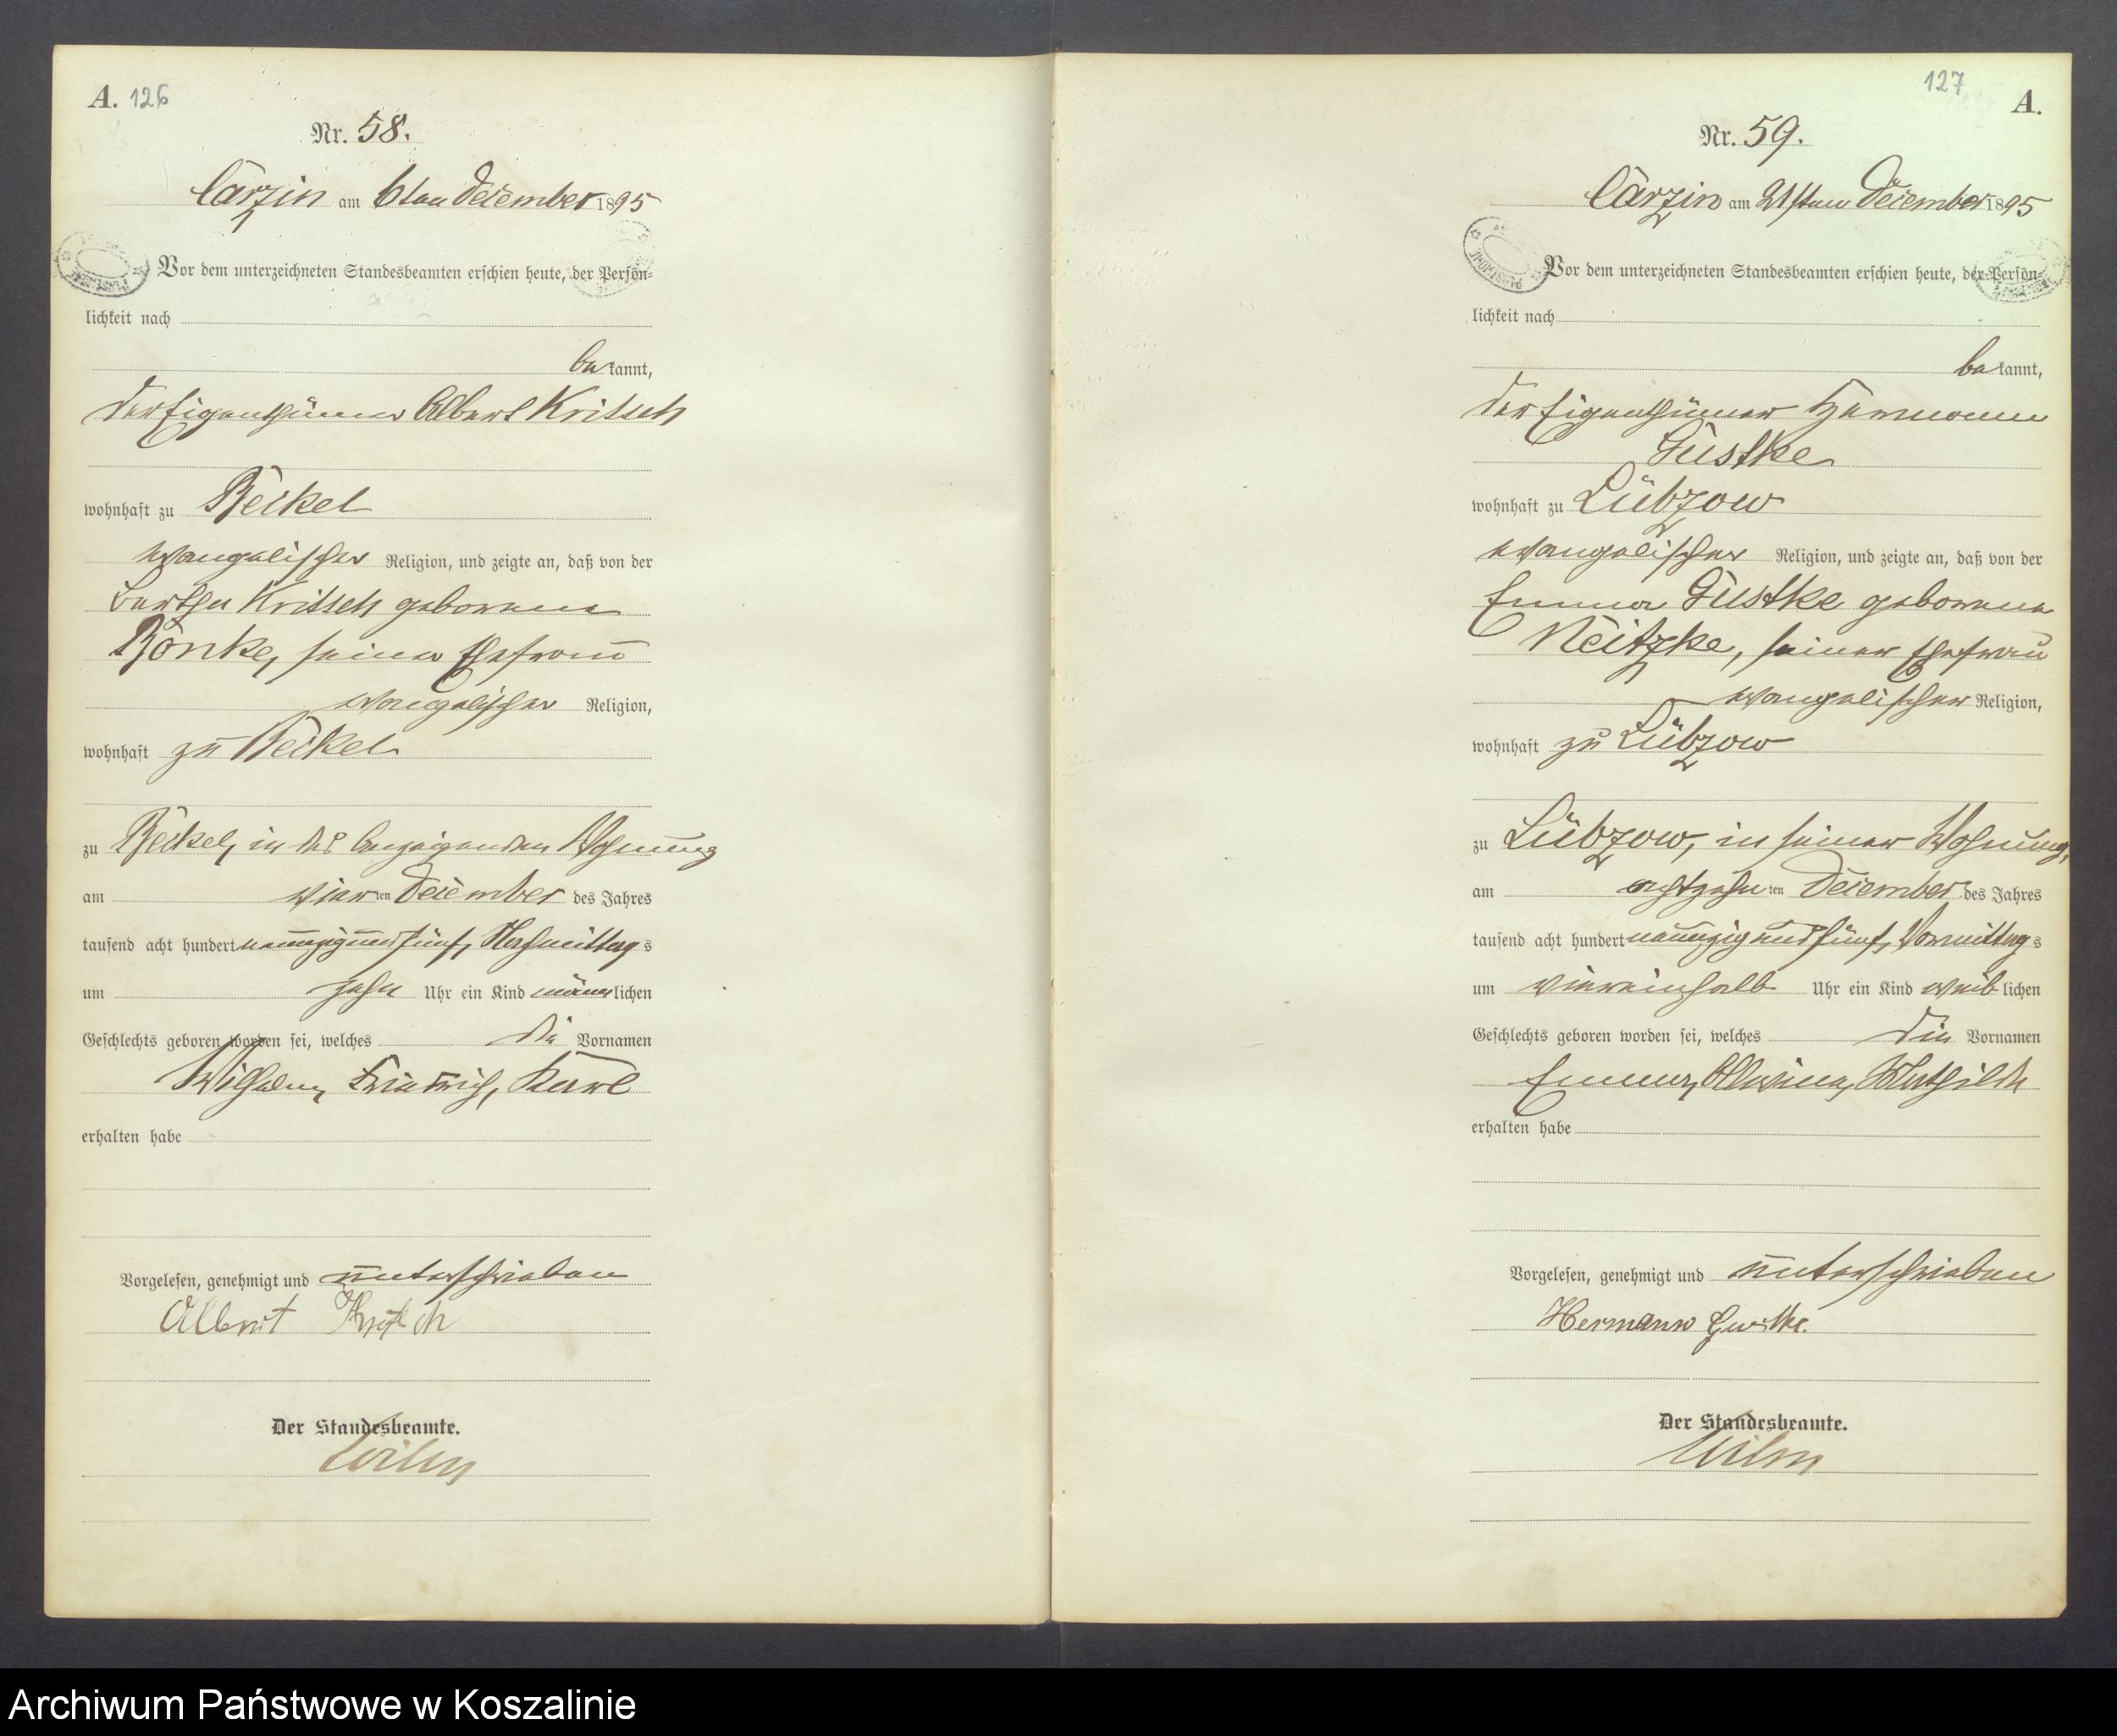 A. 126
Nr. 58.
Carzin am 6ten December 1895
Vor dem unterzeichneten Standesbeamten erschien heute, der Persön-
lichkeit nach
be kannt,
der Eigenthümer Albert Kritsch
wohnhaft zu Beckel
evangelischer Religion, und zeigte an, daß von der
Bertha Kritsch geborene
Bonke, seiner Ehefrau
evangelischer Religion,
wohnhaft zu Beckel
zu Beckel, in des Anzeigenden Wohnung
am vier ten December des Jahres
tausend acht hundert neunzig und fünf, Nachmittag s
um zehn Uhr ein Kind männ lichen
Geschlechts geboren worden sei, welches die Vornamen
Wilhelm, Friedrich, Karl
erhalten habe
Vorgelesen, genehmigt und unterschrieben
Albert Kritsch
Der Standesbeamte.
Wilm
127 A.
Nr. 59.
Carzin am 21sten December 1895
Vor dem unterzeichneten Standesbeamten erschien heute, der Persön-
lichkeit nach
be kannt,
der Eigenthümer Hermann
Güstke
wohnhaft zu Lübzow
evangelischer Religion, und zeigte an, daß von der
Emma Güstke geborene
Neitzke, seiner Ehefrau
evangelischer Religion,
wohnhaft zu Lübzow
zu Lübzow, in seiner Wohnung,
am achtzehn ten December des Jahres
tausend acht hundert neunzig und fünf, Vormittag s
um viereinhalb Uhr ein Kind weib lichen
Geschlechts geboren worden sei, welches die Vornamen
Emma, Alwine, Mathilde
erhalten habe
Vorgelesen, genehmigt und unterschrieben
Hermann Gustke.
Der Standesbeamte.
Wilm
Archiwum Państwowe w Koszalinie